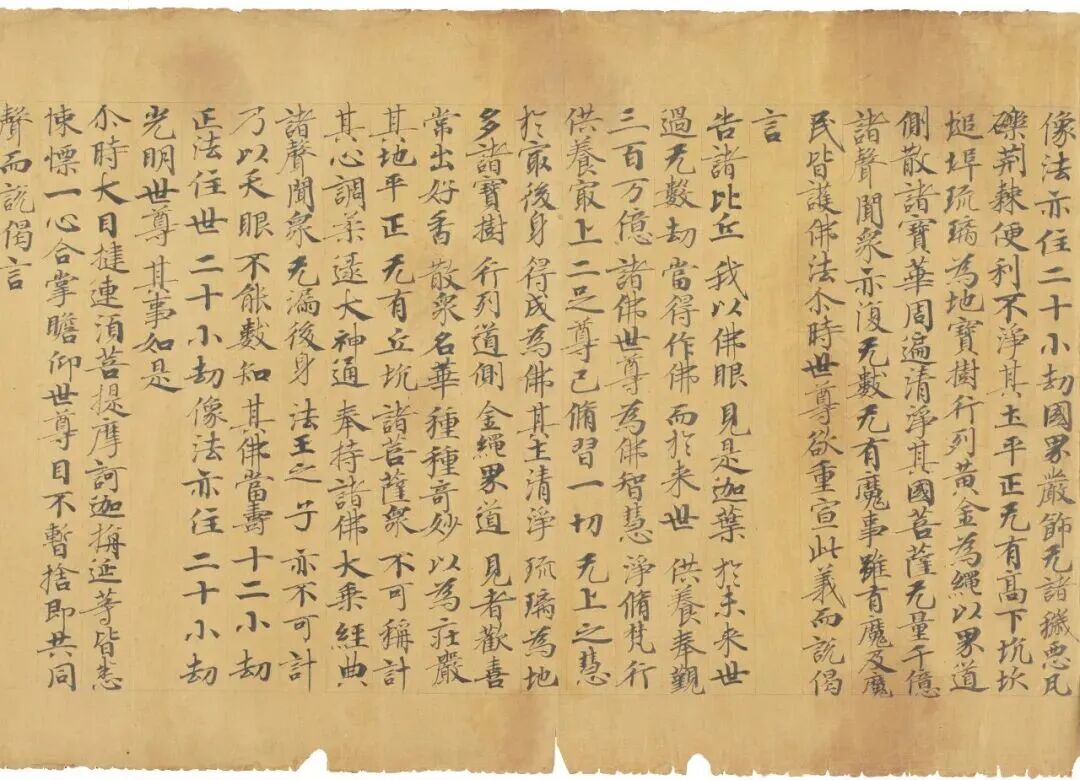 像法亦住二十小劫國界嚴飾无諸穢惡凡
礫荊棘便利不淨其土平正无有高下坑坎
塠埠琉璃為地寶樹行列黃金為繩以界道
側散諸寶華周遍清淨其國菩薩无量千億
諸聲聞衆亦復无數无有魔事雖有魔及魔
民皆護佛法尒時世尊欲重宣此義而說偈
言
告諸比丘 我以佛眼 見是迦葉 於未來世
過无數劫 當得作佛 而於來世 供養奉覲
三百万億 諸佛世尊 為佛智慧 淨脩梵行
供養㝡上 二足尊已 脩習一切 无上之慧
於㝡後身 得成為佛 其土清淨 琉璃為地
多諸寶樹 行列道側 金繩界道 見者歡喜
常出好香 散衆名華 種種奇妙 以為莊嚴
其地平正 无有丘坑 諸菩薩衆 不可稱計
其心調柔 逮大神通 奉持諸佛 大乘經典
諸聲聞衆 无漏後身 法王之子 亦不可計
乃以天眼 不能數知 其佛當壽 十二小劫
正法住世 二十小劫 像法亦住 二十小劫
光明世尊 其事如是
尒時大目揵連須菩提摩訶迦旃延等皆悉
悚慄一心合掌瞻仰世尊目不暫捨即共同
聲而說偈言